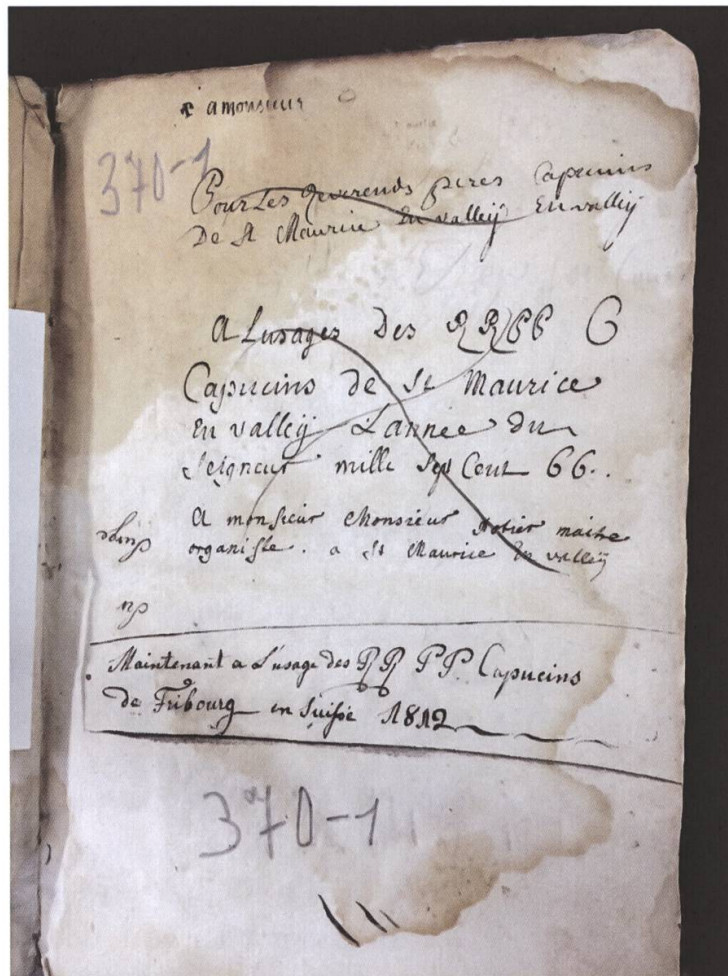 a monsieur
370-1
Pour Les Reverends peres Capucins
De St Maurice En valleÿ En valleÿ
A Lusages Des RRPP C
Capucins de St Maurice
En valleÿ L'annee du
Seigneur mille Sept Cent 66.
A monsieur Monsieur maitre
organiste. a St Maurice En valleÿ
Maintenant a L'usage des RR PP. Capucins
de Fribourg en Suisse 1812
370-1